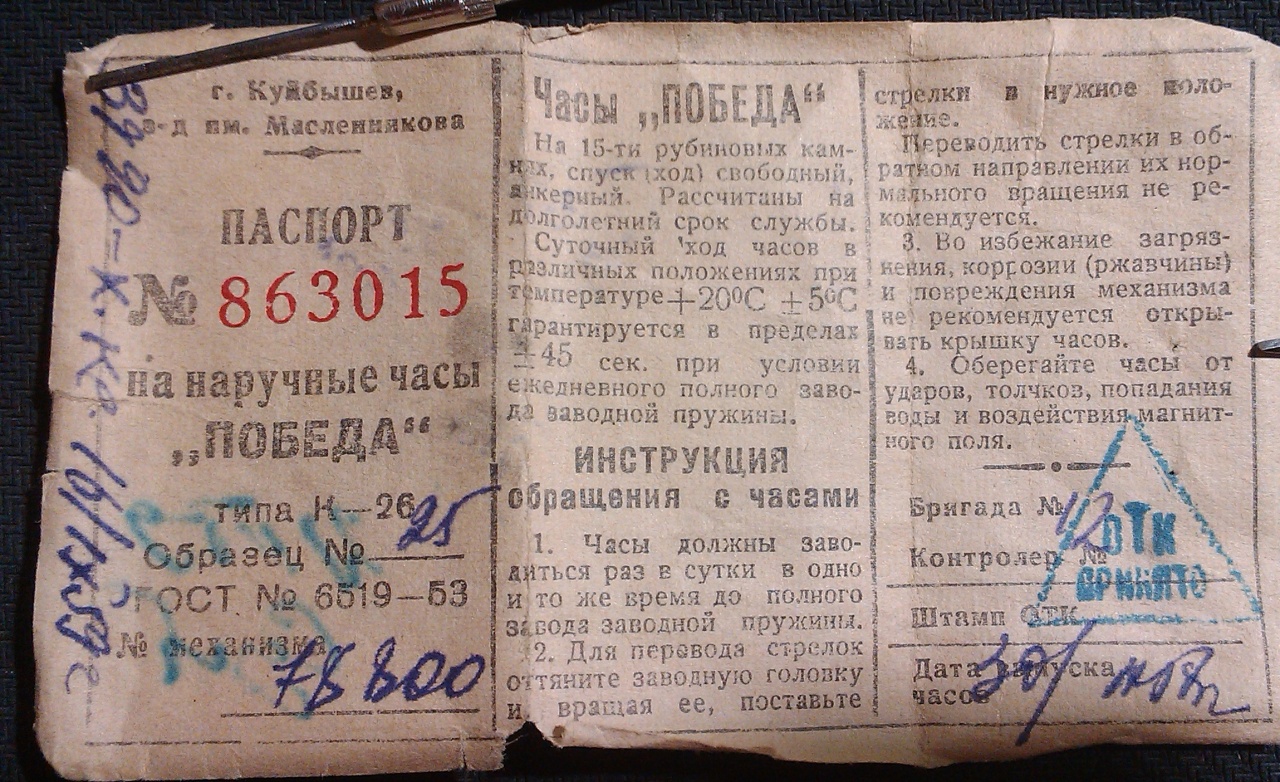 г. Куйбышев,
з-д им. Масленникова
ПАСПОРТ
№ 863015
на наручные часы
„ПОБЕДА“
типа К—26
Образец № 25
ГОСТ № 6519—53
№ механизма
78 800
Часы „ПОБЕДА“
На 15-ти рубиновых кам-
нях, спуск (ход) свободный,
анкерный. Рассчитаны на
долголетний срок службы.
Суточный ход часов в
различных положениях при
температуре +20°С ±5°С
гарантируется в пределах
±45 сек. при условии
ежедневного полного заво-
да заводной пружины.
ИНСТРУКЦИЯ
обращения с часами
1. Часы должны заво-
диться раз в сутки в одно
и то же время до полного
завода заводной пружины.
2. Для перевода стрелок
оттяните заводную головку
и, вращая ее, поставьте
стрелки в нужное поло-
жение.
Переводить стрелки в об-
ратном направлении их нор-
мального вращения не ре-
комендуется.
3. Во избежание загряз-
нения, коррозии (ржавчины)
и повреждения механизма
не рекомендуется откры-
вать крышку часов.
4. Оберегайте часы от
ударов, толчков, попадания
воды и воздействия магнит-
ного поля.
Бригада № 12
Контролер №
Штамп ОТК
Дата выпуска
часов 30/
ОТК
ПРИНЯТО